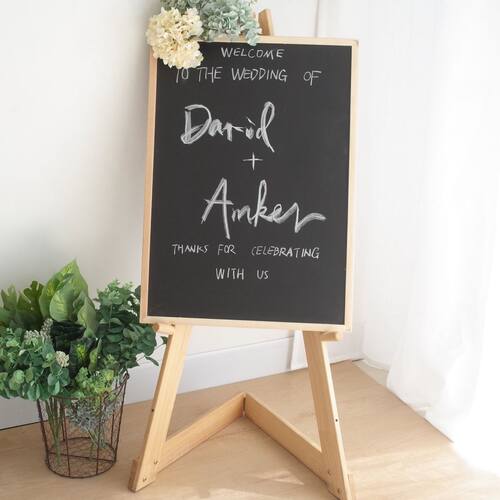 WELCOME
TO THE WEDDING OF
David
+
Amker
THANKS FOR CELEBRATING
WITH US